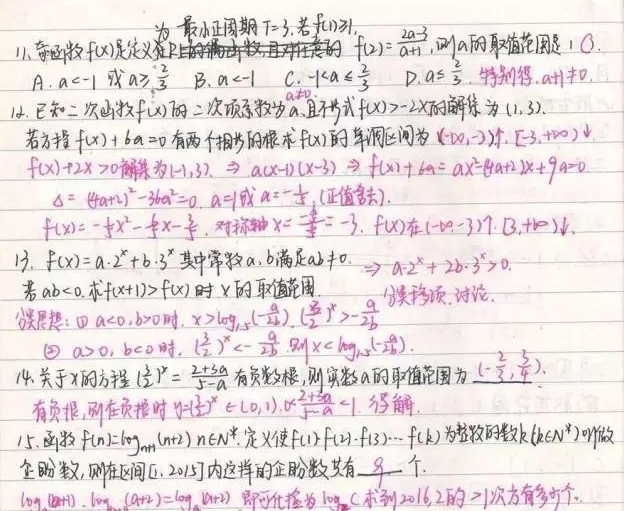 为 最小正周期T=3,若f(1)≥1,
11.奇函数f(x)是定义在R上的 f(2)=\frac{2a-3}{a+1},则a的取值范围是( C ).
A. a<-1 或 a≥\frac{2}{3} B. a<-1 C. -1<a≤\frac{2}{3} D. a≤\frac{2}{3}. 特别得. a+1≠0.
a≠0.
12. 已知二次函数f(x)的二次项系数为a,且不等式f(x)>-2x的解集为(1,3).
若方程f(x)+6a=0有两个相等的根求f(x)的单调区间为 (-∞,-3)↑. [-3,+∞)↓
f(x)+2x>0解集为(1,3). ⇒ a(x-1)(x-3) ⇒ f(x)+6a=ax²-(4a+2)x+9a=0
Δ=(4a+2)²-36a²=0. a=1或a=-\frac{1}{5}.(正值舍去).
f(x)=-\frac{1}{5}x²-\frac{6}{5}x-\frac{3}{5}. 对称轴x= =-3. f(x)在(-∞-3)↑. [3,+∞)↓.
13. f(x)=a·2^x+b·3^x 其中常数a,b满足ab≠0. ⇒ a·2^x+2b·3^x>0.
若ab<0.求f(x+1)>f(x)时x的取值范围 分类移项,讨论.
分类思想:① a<0,b>0时. x>log_{1.5}(-\frac{a}{2b}). (\frac{3}{2})^x>-\frac{a}{2b}
② a>0, b<0时. (\frac{3}{2})^x<-\frac{a}{2b}.则x<log_{1.5}(-\frac{a}{2b}).
14.关于x的方程(\frac{3}{2})^x=\frac{2+3a}{5-a}有负数根,则实数a的取值范围为 (-\frac{2}{3},\frac{3}{4}).
有负根,则在负根时y=(\frac{3}{2})^x∈(0,1).0<\frac{2+3a}{5-a}<1. 得解.
15.函数f(n)=log_{n+1}(n+2) n∈N*.定义使f(1)·f(2)·f(3)···f(k)为整数的数k(k∈N*)叫做
企盼数,则在区间[1,2015]内这样的企盼数共有 9 个.
即可化陉为log 求到2016,2的>1次方有多少个.